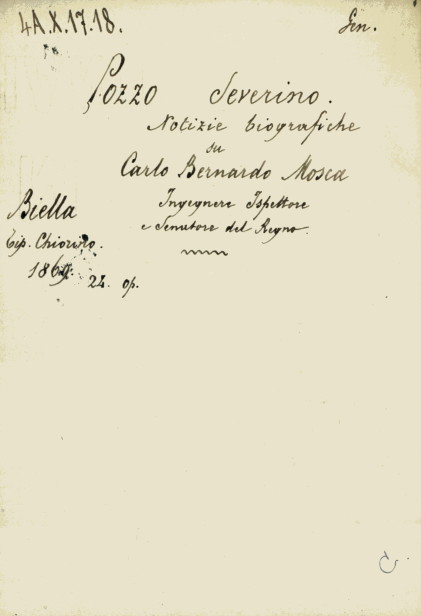 4A.X.17.18. Gen.
Pozzo Severino.
Notizie biografiche
su
Carlo Bernardo Mosca
Ingegnere Ispettore
e Senatore del Regno.
Biella
Tip. Chiorino.
op.